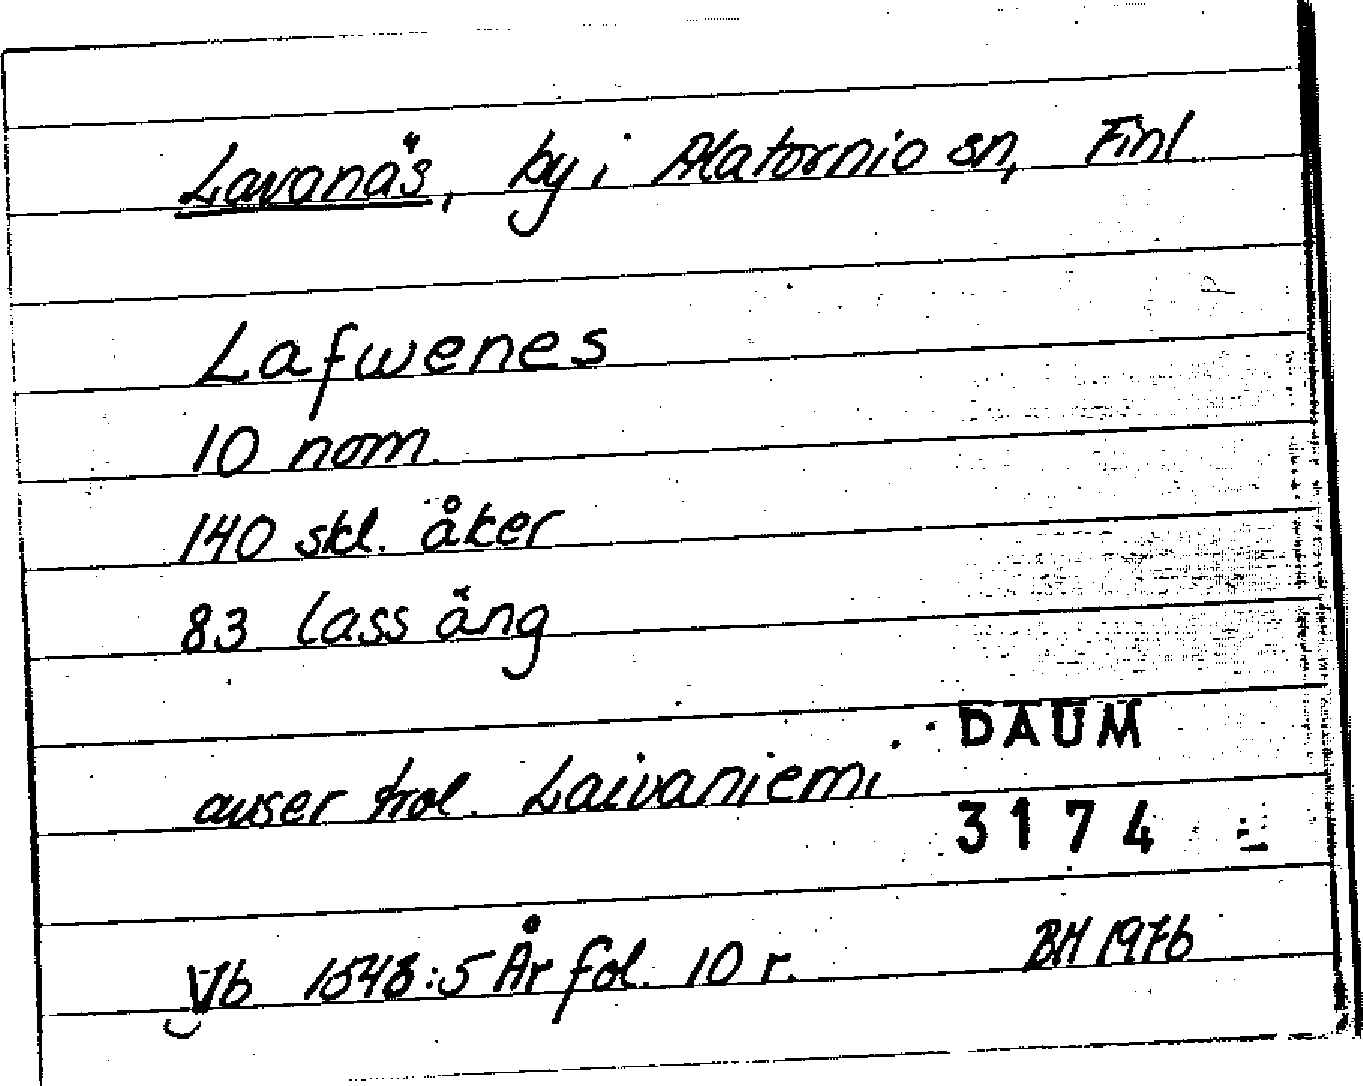 Lavanäs, by i Alatornio sn, Finl
Lafwenes
10 nom.
140 skl. åker
83 lass äng
DAUM
avser trol. Laivaniemi
3174
Vb 1543:5 År fol. 10 r.
BH 1976